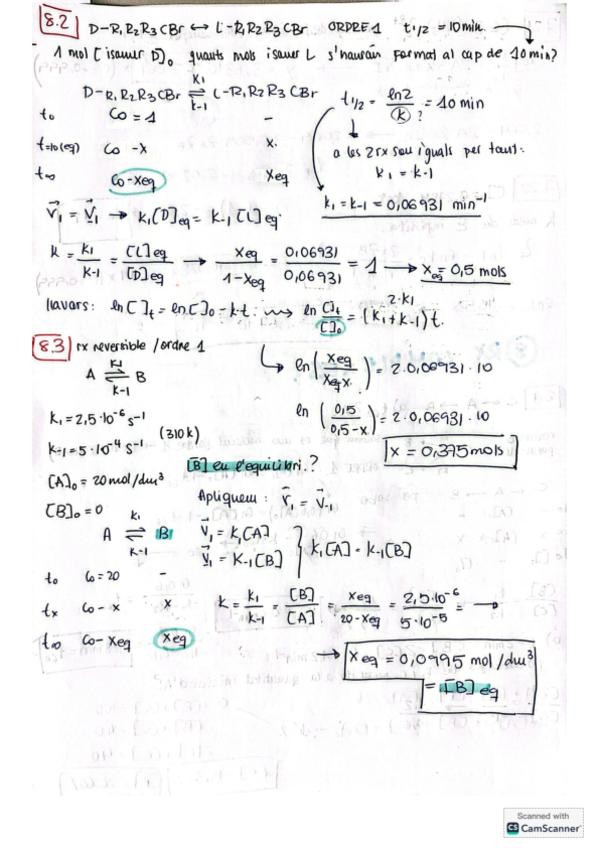 8.2 D-R1R2R3CBr ↔ L-R1R2R3CBr ORDRE 1 t1/2 = 10min.
1 mol [isomer D]o quants mols isomer L s'hauran format al cap de 10min?
D-R1R2R3CBr ⇌ L-R1R2R3CBr
K1
K-1
to Co = 1 -
t=10(eq) Co -x x.
t∞ Co-Xeq Xeq
t1/2 = ln2/K = 10 min
?
a les 2rx son iguals per tant:
K1 = K-1
K1 = K-1 = 0,06931 min⁻¹
V1 = V1 → K1[D]eq = K-1 [L]eq.
K = K1/K-1 = [L]eq/[D]eq → Xeq/1-Xeq = 0,06931/0,06931 = 1 → Xeq = 0,5 mols
llavors: ln[ ]t = ln[ ]o - k·t. → ln [ ]t/[ ]o = (K1+K-1) t.
2·K1
8.3 rx reversible / ordre 1
A ⇌ B
K1
K-1
ln (Xeq/Xeq-x) = 2·0,06931·10
ln (0,5/0,5-x) = 2·0,06931·10
x = 0,375mols
K1 = 2,5·10⁻⁶ s⁻¹
K-1 = 5·10⁻⁴ s⁻¹ (310K)
[A]o = 20mol/dm³
[B]o = 0
[B] en l'equilibri.?
Apliquem: V1 = V-1
A ⇌ B
K1
K-1
V1 = K1[A]
V1 = K-1[B]
K1[A] = K-1[B]
to Co=20 -
tx Co - x x
t∞ Co- Xeq Xeq
K = K1/K-1 = [B]/[A] = Xeq/20-Xeq = 2,5·10⁻⁶/5·10⁻⁵ = →
→ Xeq = 0,0995 mol/dm³
= [B] eq
Scanned with
CS CamScanner